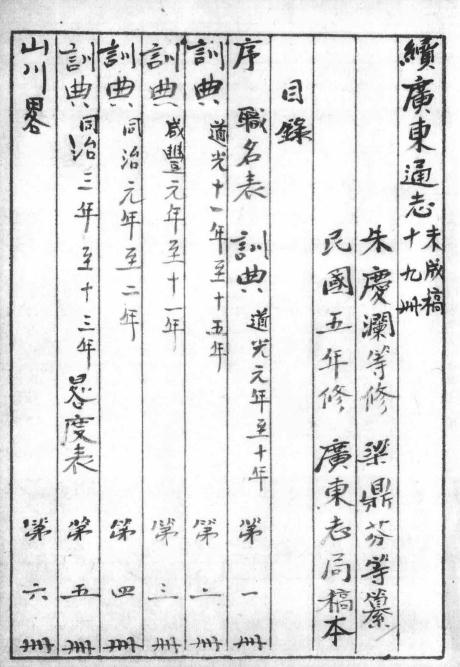 續廣東通志 未成稿
十九冊
朱慶瀾等修 梁鼎芬等纂
民國五年修 廣東志局稿本
目錄
序 職名表 訓典 道光元年至十年 第一冊
訓典 道光十一年至十五年 第二冊
訓典 咸豐元年至十一年 第三冊
訓典 同治元年至二年 第四冊
訓典 同治三年至十三年 晷度表 第五冊
山川畧 第六冊